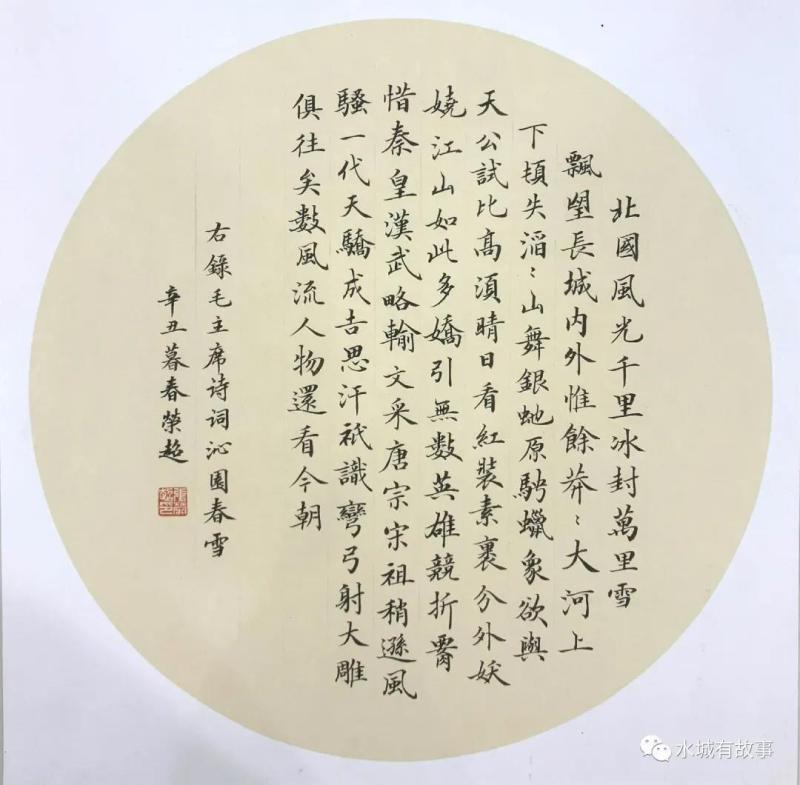 北國風光千里冰封萬里雪
飄望長城內外惟餘莽〻大河上
下頓失滔〻山舞銀虵原馳蠟象欲與
天公試比高須晴日看紅裝素裹分外妖
嬈江山如此多嬌引無數英雄競折
惜秦皇漢武略輸文采唐宗宋祖稍遜風
騷一代天驕成吉思汗祇識彎弓射大雕
俱往矣數風流人物還看今朝
右錄毛主席诗词沁園春雪
辛丑暮春榮超
水城有故事